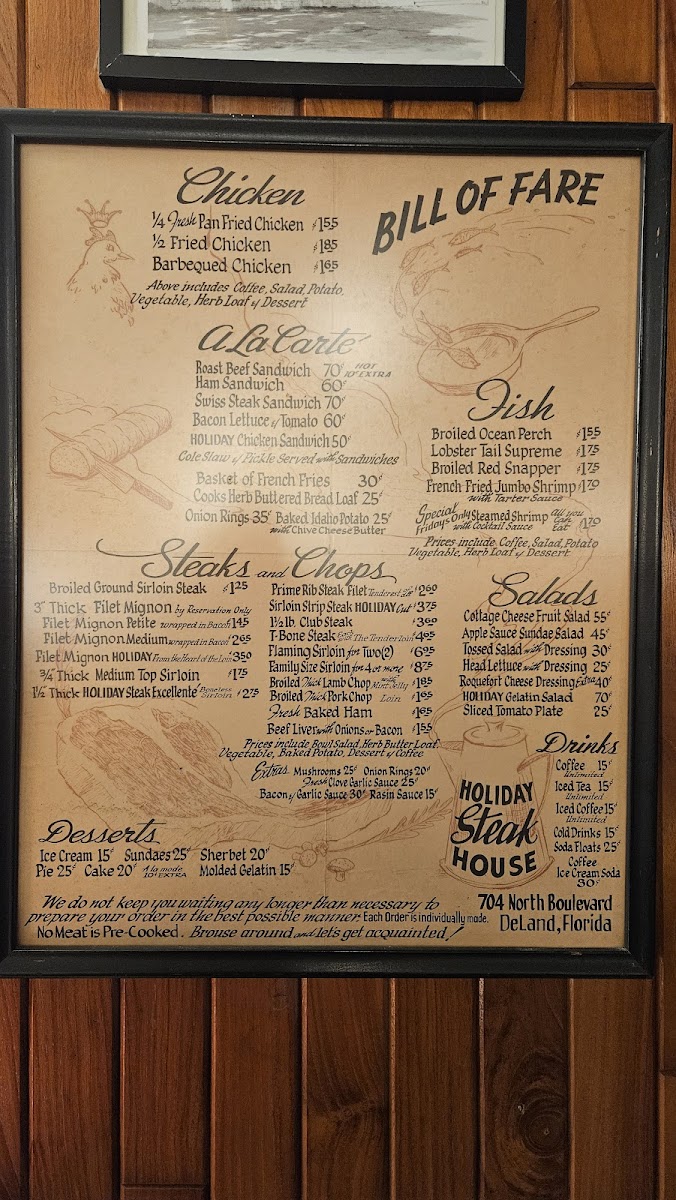 BILL OF FARE
Chicken
¼ Fresh Pan Fried Chicken $1.55
½ Fried Chicken $1.85
Barbequed Chicken $1.65
Above includes Coffee, Salad, Potato,
Vegetable, Herb Loaf & Dessert
A La Carte
Roast Beef Sandwich 70¢ HOT 10¢ EXTRA
Ham Sandwich 60¢
Swiss Steak Sandwich 70¢
Bacon Lettuce & Tomato 60¢
HOLIDAY Chicken Sandwich 50¢
Cole Slaw & Pickle Served with Sandwiches
Basket of French Fries 30¢
Cooks Herb Buttered Bread Loaf 25¢
Onion Rings 35¢ Baked Idaho Potato 25¢
with Chive Cheese Butter
Fish
Broiled Ocean Perch $1.55
Lobster Tail Supreme $1.75
Broiled Red Snapper $1.75
French Fried Jumbo Shrimp $1.70
with Tarter Sauce
Special Fridays Only Steamed Shrimp with Cocktail Sauce All you Can Eat $1.70
Prices include Coffee, Salad, Potato
Vegetable, Herb Loaf & Dessert
Steaks and Chops
Broiled Ground Sirloin Steak $1.25
3" Thick Filet Mignon by Reservation Only
Filet Mignon Petite wrapped in Bacon 1.45
Filet Mignon Medium wrapped in Bacon 2.65
Filet Mignon HOLIDAY From the Heart of the Loin 3.50
¾" Thick Medium Top Sirloin $1.75
1½" Thick HOLIDAY Steak Excellente Boneless Sirloin $2.75
Prime Rib Steak Filet Tenderest $2.60
Sirloin Strip Steak HOLIDAY Cut $3.75
1½ lb. Club Steak $3.60
T-Bone Steak The Tenderloin $4.05
Flaming Sirloin for Two (2) $6.95
Family Size Sirloin for 4 or more $8.75
Broiled Thick Lamb Chop with Mint Jelly $1.85
Broiled Thick Pork Chop Loin $1.65
Fresh Baked Ham $1.65
Beef Liver with Onions or Bacon $1.55
Prices include Bowl Salad, Herb Butter Loaf
Vegetable, Baked Potato, Dessert & Coffee
Extras Mushrooms 25¢ Onion Rings 20¢
Fresh Clove Garlic Sauce 25¢
Bacon & Garlic Sauce 30¢ Rasin Sauce 15¢
Salads
Cottage Cheese Fruit Salad 55¢
Apple Sauce Sundae Salad 45¢
Tossed Salad with Dressing 30¢
Head Lettuce with Dressing 25¢
Roquefort Cheese Dressing Extra 40¢
HOLIDAY Gelatin Salad 70¢
Sliced Tomato Plate 25¢
Drinks
Coffee 15¢
Unlimited
Iced Tea 15¢
Unlimited
Iced Coffee 15¢
Unlimited
Cold Drinks 15¢
Soda Floats 25¢
Coffee
Ice Cream Soda
30¢
HOLIDAY
Steak
HOUSE
Desserts
Ice Cream 15¢ Sundaes 25¢ Sherbet 20¢
Pie 25¢ Cake 20¢ A la mode 10¢ EXTRA Molded Gelatin 15¢
We do not keep you waiting any longer than necessary to
prepare your order in the best possible manner. Each Order is individually made.
No Meat is Pre-Cooked. Brouse around and let's get acquainted!
704 North Boulevard
DeLand, Florida